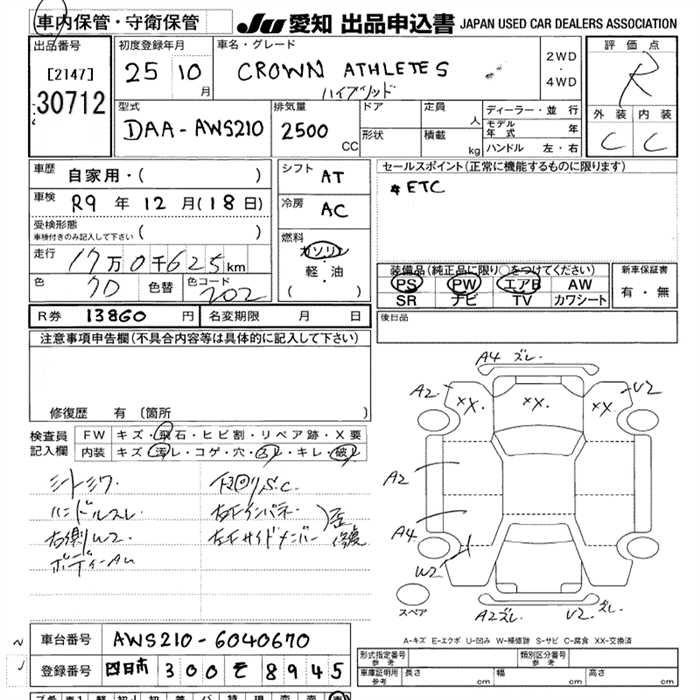 車内保管・守衛保管
JU 愛知 出品申込書 JAPAN USED CAR DEALERS ASSOCIATION
出品番号
[2147]
30712
初度登録年月
25 10月
車名・グレード
CROWN ATHLETE S
ハイブリッド
2WD
・
4WD
評価点
R
外装 内装
C C
型式
DAA-AWS210
排気量
2500 CC
ドア
形状
定員 人
積載 kg
ディーラー・並行
モデル年式 年
ハンドル 左・右
車歴 自家用・( )
車検 R9 年 12 月(18日)
受検形態
車検付きのみ記入して下さい ( )
走行 17万0千625km
色 クロ 色替 色コード 202
シフト AT
冷房 AC
燃料
ガソリン
・
軽・油
( )
セールスポイント(正常に機能するものに限ります)
# ETC
装備品(純正品に限り○をつけてください)
PS PW エアB AW
SR ナビ TV カワシート
新車保証書
有・無
後日品
R券 13860 円 名変期限 月 日
注意事項申告欄(不具合内容等は具体的に記入して下さい)
修復歴 有 (箇所 )
検査員
記入欄
FW キズ・飛石・ヒビ割・リペア跡・X要
内装 キズ・汚レ・コゲ・穴・スレ・キレ・破レ
シートシワ
ハンドルスレ
右側W2
ボディーAu
下回りS.C
左右インパネ
左右サイドメンバー
歪
修復
A4 ズレ
A2
XX.
XX.
XX.
U2
A2
A4
W2
スペア
A2ズレ
U2.ズレ
A-キズ E-エクボ U-凹み W-補修跡 S-サビ C-腐食 XX-交換済
車台番号 AWS210-6040670
登録番号 四日市 300 そ 8945
形式指定番号
参考
類別区分番号
参考
車庫証明用
参考
長さ cm
幅 cm
高さ cm